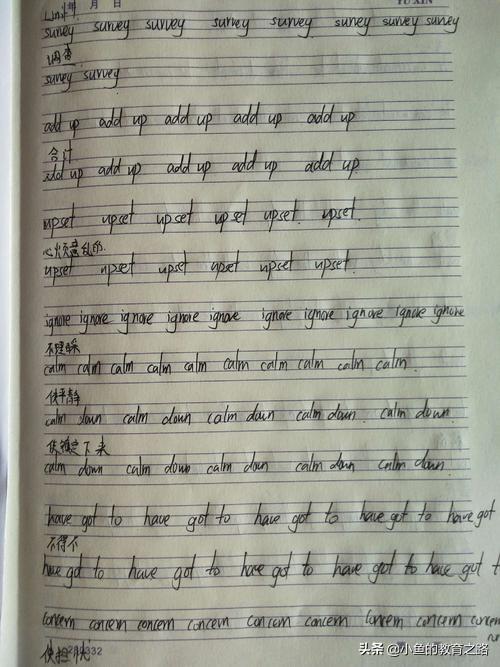 Unit 1. 年 月 日 YU XIN
survey survey survey survey survey survey survey survey
调查
survey survey
add up add up add up add up add up
合计
add up add up add up add up add up
upset upset upset upset upset. upset.
心烦意乱的.
upset upset upset upset upset upset.
ignore ignore ignore ignore ignore ignore ignore ignore ignore ignore
不理睬
calm calm calm calm calm calm calm calm calm calm.
使平静
calm down calm down calm down calm down. calm down.
使镇定下来
calm down calm down calm down calm down calm down.
have got to have got to have got to have got to have got
不得不
have got to have got to have got to have got to have got t
concern concern concern concern concern concern concern concern concern
使担忧
头条 @小鱼的教育之路